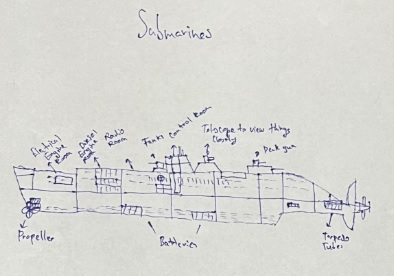 Submarines
Electrical
Engine
Room
Diesel
Engine
Room
Radio
Room
Control Room
Telscope to view things
Closely
Deck gun
Propeller
Batteries
Torpedo
Tubes